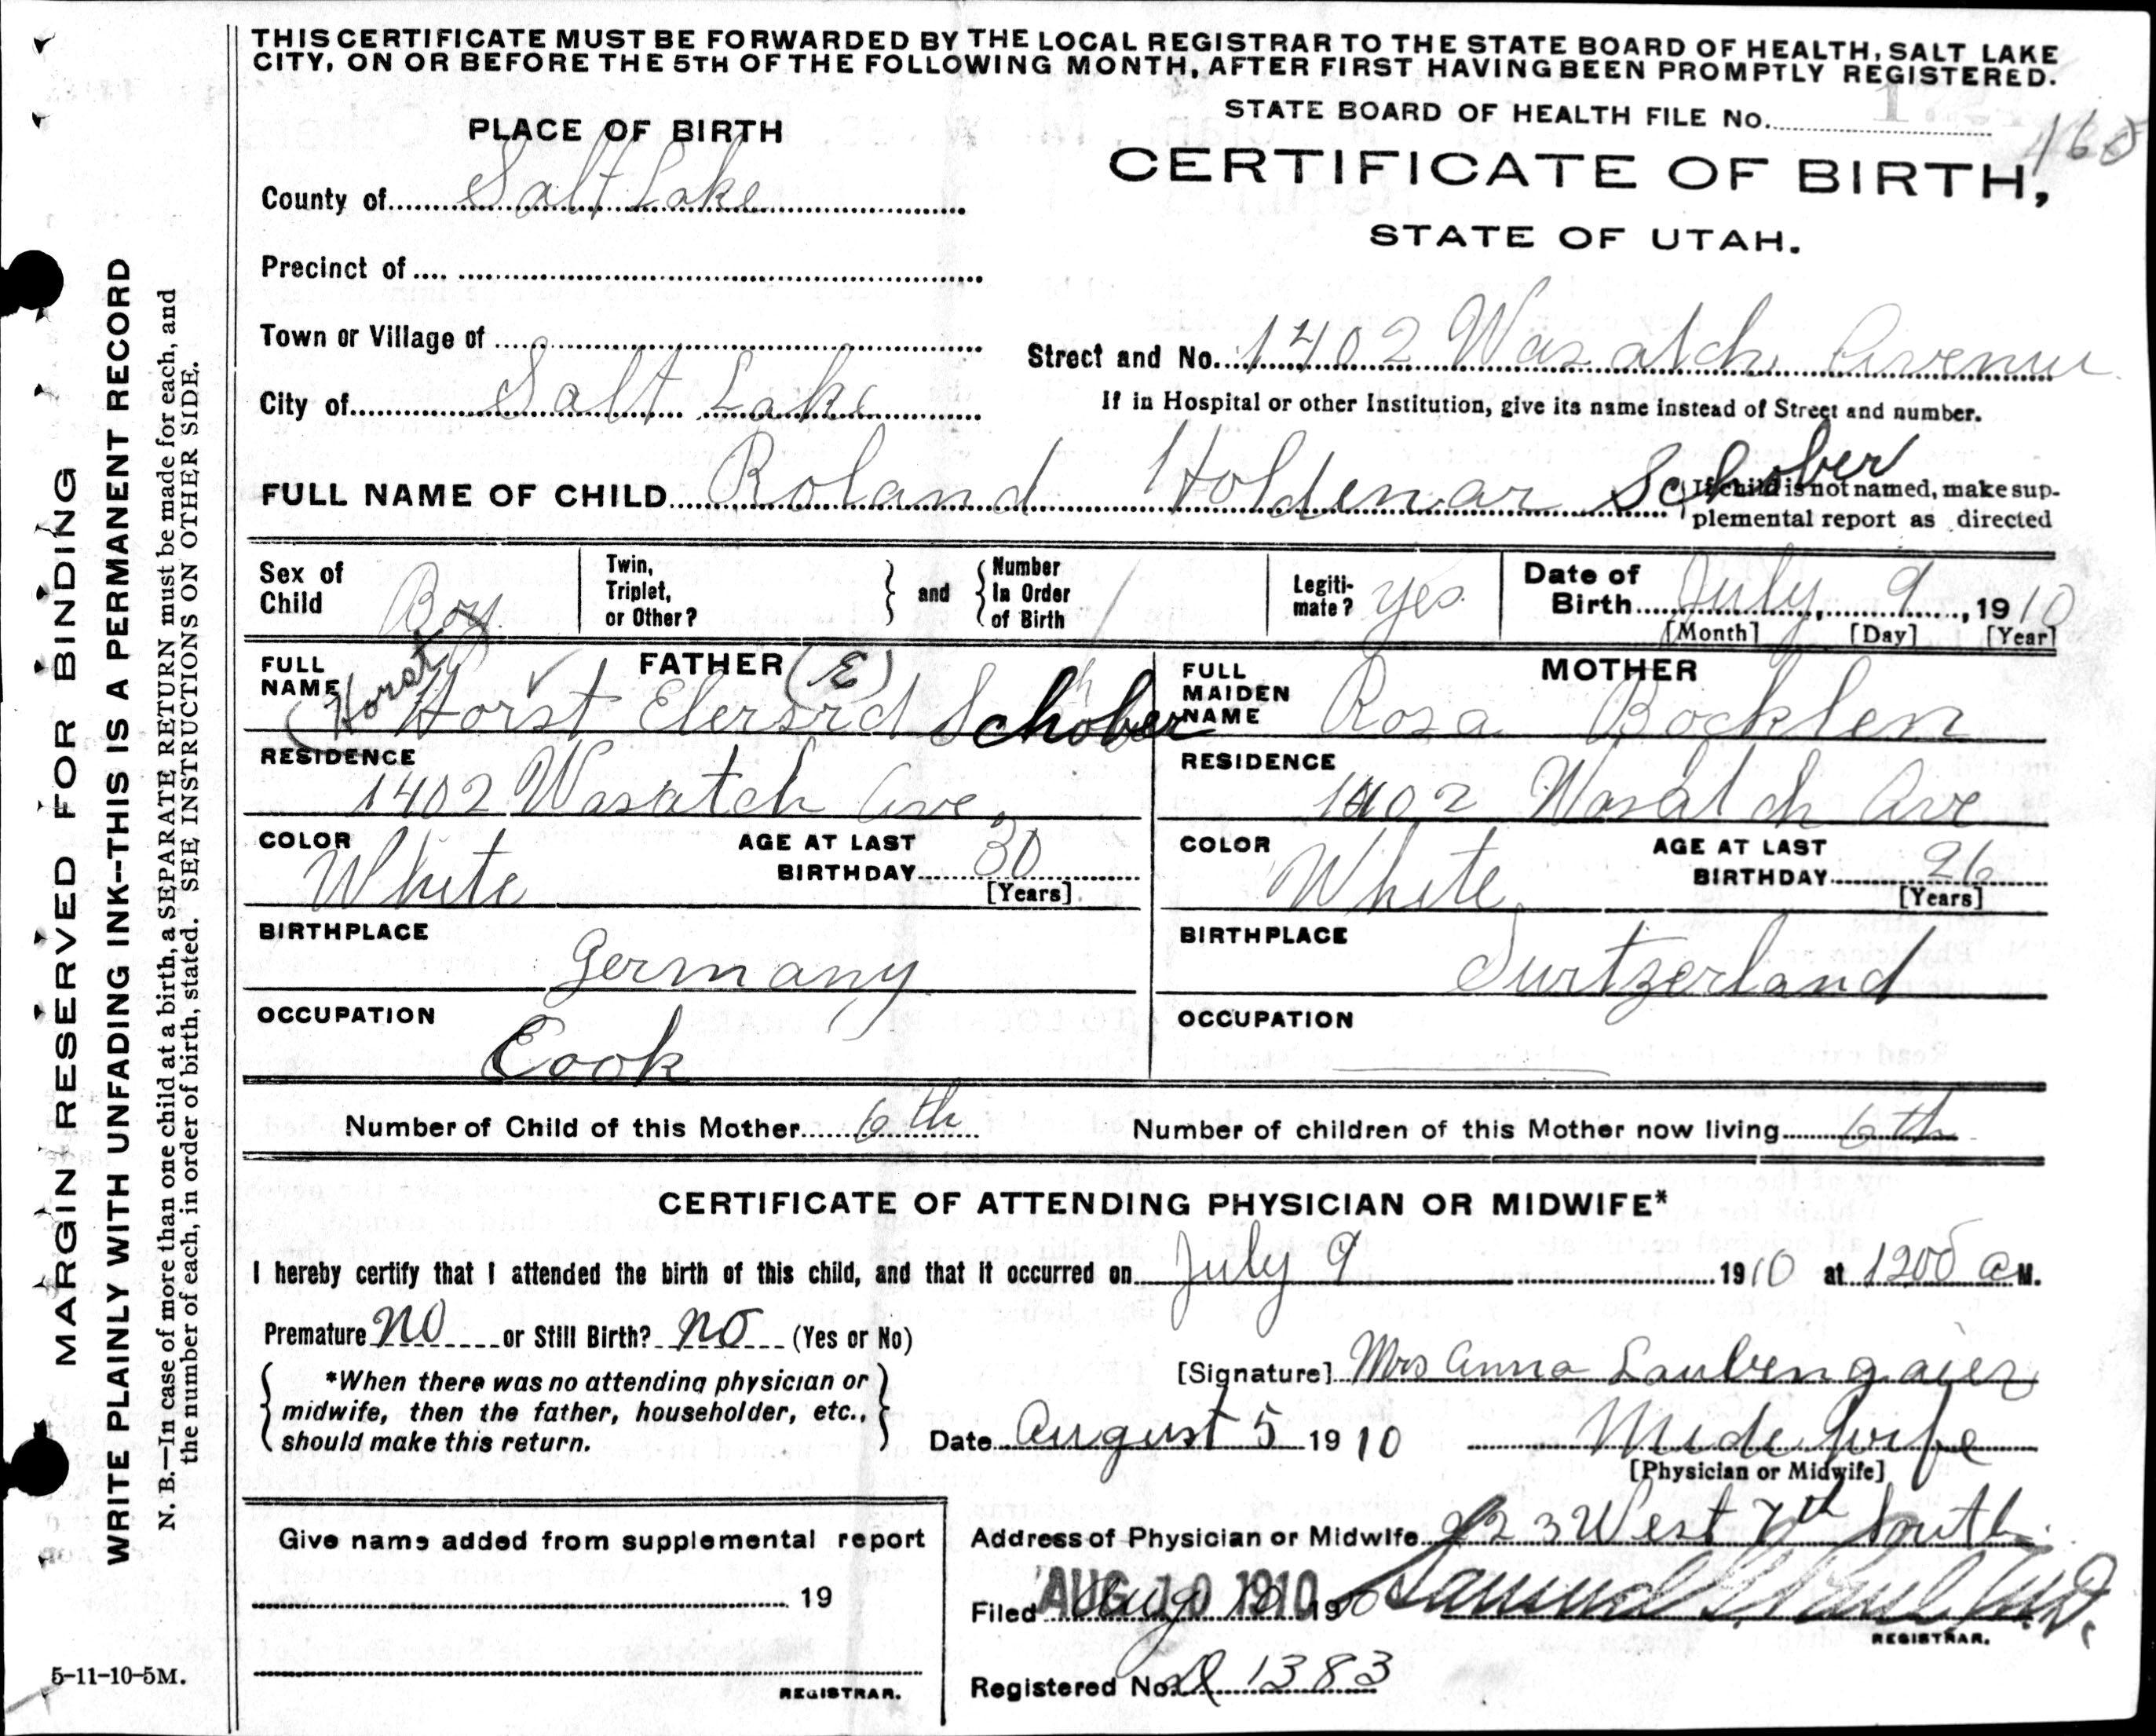 THIS CERTIFICATE MUST BE FORWARDED BY THE LOCAL REGISTRAR TO THE STATE BOARD OF HEALTH, SALT LAKE
CITY, ON OR BEFORE THE 5TH OF THE FOLLOWING MONTH, AFTER FIRST HAVING BEEN PROMPTLY REGISTERED.
STATE BOARD OF HEALTH FILE No.
PLACE OF BIRTH
CERTIFICATE OF BIRTH,
STATE OF UTAH.
County of Salt Lake
Precinct of
Town or Village of
Street and No. 1402 Wasatch Avenue
City of Salt Lake
If in Hospital or other Institution, give its name instead of Street and number.
FULL NAME OF CHILD Roland Holdemar Schober
If child is not named, make sup-
plemental report as directed
Sex of Child Boy
Twin, Triplet, or Other? and Number In Order of Birth
Legiti-mate? yes
Date of Birth July 9, 1910
[Month] [Day] [Year]
FATHER (E)
FULL NAME (Horst Horst Schober
RESIDENCE
1402 Wasatch Ave
COLOR White
AGE AT LAST BIRTHDAY 30
[Years]
BIRTHPLACE
Germany
OCCUPATION
Cook
MOTHER
FULL MAIDEN NAME Rosa Bocklen
RESIDENCE
1402 Wasatch Ave
COLOR White
AGE AT LAST BIRTHDAY 26
[Years]
BIRTHPLACE
Surtzerland
OCCUPATION
Number of Child of this Mother 6th
Number of children of this Mother now living 6th
CERTIFICATE OF ATTENDING PHYSICIAN OR MIDWIFE*
I hereby certify that I attended the birth of this child, and that it occurred on July 9 1910 at 1200 a M.
Premature no or Still Birth? no (Yes or No)
*When there was no attending physician or
midwife, then the father, householder, etc.,
should make this return.
[Signature] Mrs Anna Laubengaier
Date August 5 1910
Mide wife
[Physician or Midwife]
Address of Physician or Midwife 923 West 7th South
Filed AUG 10 1910 Aug 10 190
REGISTRAR.
Registered No. 1383
Give name added from supplemental report
19
REGISTRAR.
5-11-10-5M.
MARGIN RESERVED FOR BINDING
WRITE PLAINLY WITH UNFADING INK--THIS IS A PERMANENT RECORD
N. B.—In case of more than one child at a birth, a SEPARATE RETURN must be made for each, and
the number of each, in order of birth, stated. SEE INSTRUCTIONS ON OTHER SIDE.